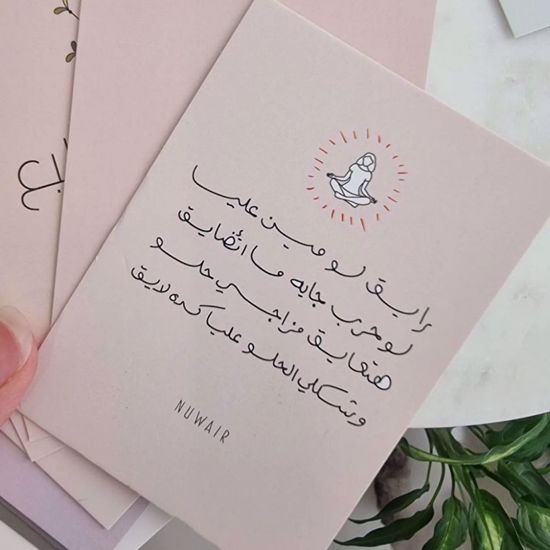 رايق لو مين عليا
لو حرب جايه ما اتضايق
هتعايق مزاجي حلو
وشكلي الحلو عليا كده لايق
NUWAIR